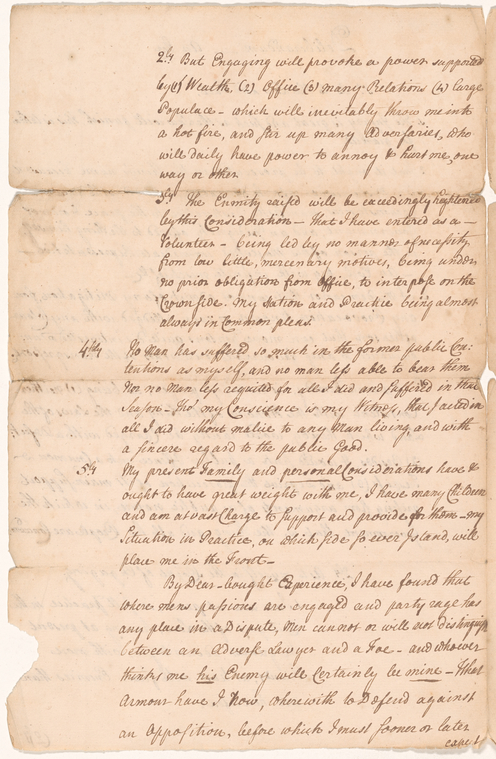 2ly But Engaging will provoke a power supported
by (1) Wealth (2) Office (3) many Relations (4) Large
Populace - which will inevitably throw me into
a hot fire, and stir up many Adversaries, who
will daily have power to annoy & hurt me, one
way or other
3ly The Enmity raised will be exceedingly heightened
by this Consideration - that I have entered as a -
Volunteer - being led by no manner of necessity
from low little, mercenary motives, being under
no prior obligation from Office, to interpose on the
Crown side. My Station and Practice being almost
always in Common pleas.
4thly No Man has suffered so much in the former public Con:
tentions as myself, and no man less able to bear them
Nor no Man less requited for all I did and suffered in that
Season - tho' my Conscience is my Witness, that I acted in
all I did without malice to any Man living, and with
a sincere regard to the public Good.
5ly My present Family and personal Considerations have &
ought to have great weight with me, I have many Children
and am at vast Charge to Support and provide for them - my
Situation in Practice, on which side so ever I stand, will
place me in the Front -
By Dear-bought Experience, I have found that
where mens passions are engaged and party rage has
any place in a Dispute, Men cannot or will not distinguish
between an adverse Lawyer and a Foe - and whoever
thinks me his Enemy will certainly be mine - What
Armour have I now, wherewith to Defend against
an Opposition, before which I must sooner or later